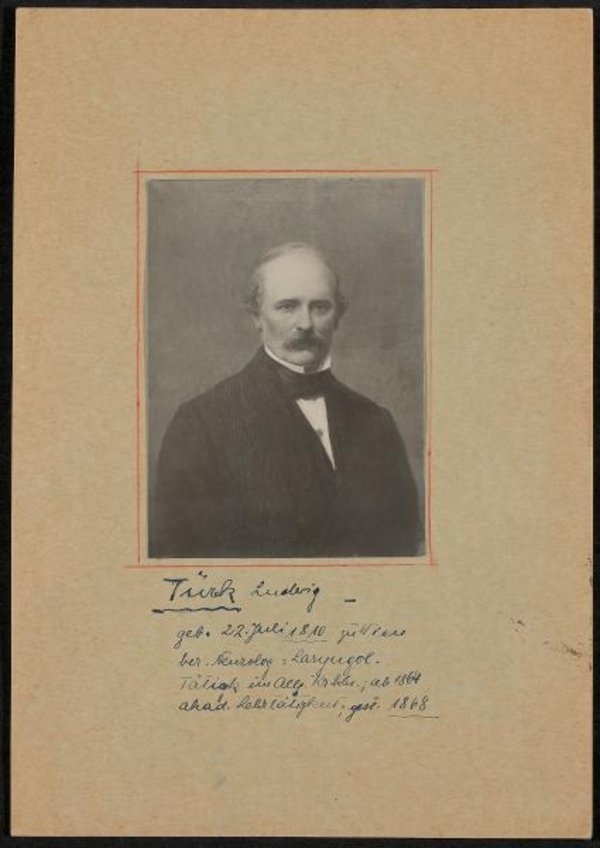 Türck Ludwig –
geb. 22. Juli 1810 zu Wien
ber. Neurolog u. Laryngol.
Tätigk. im Allg. Krkhs.; ab 1864
akad. Lehrtätigkeit; gest. 1868